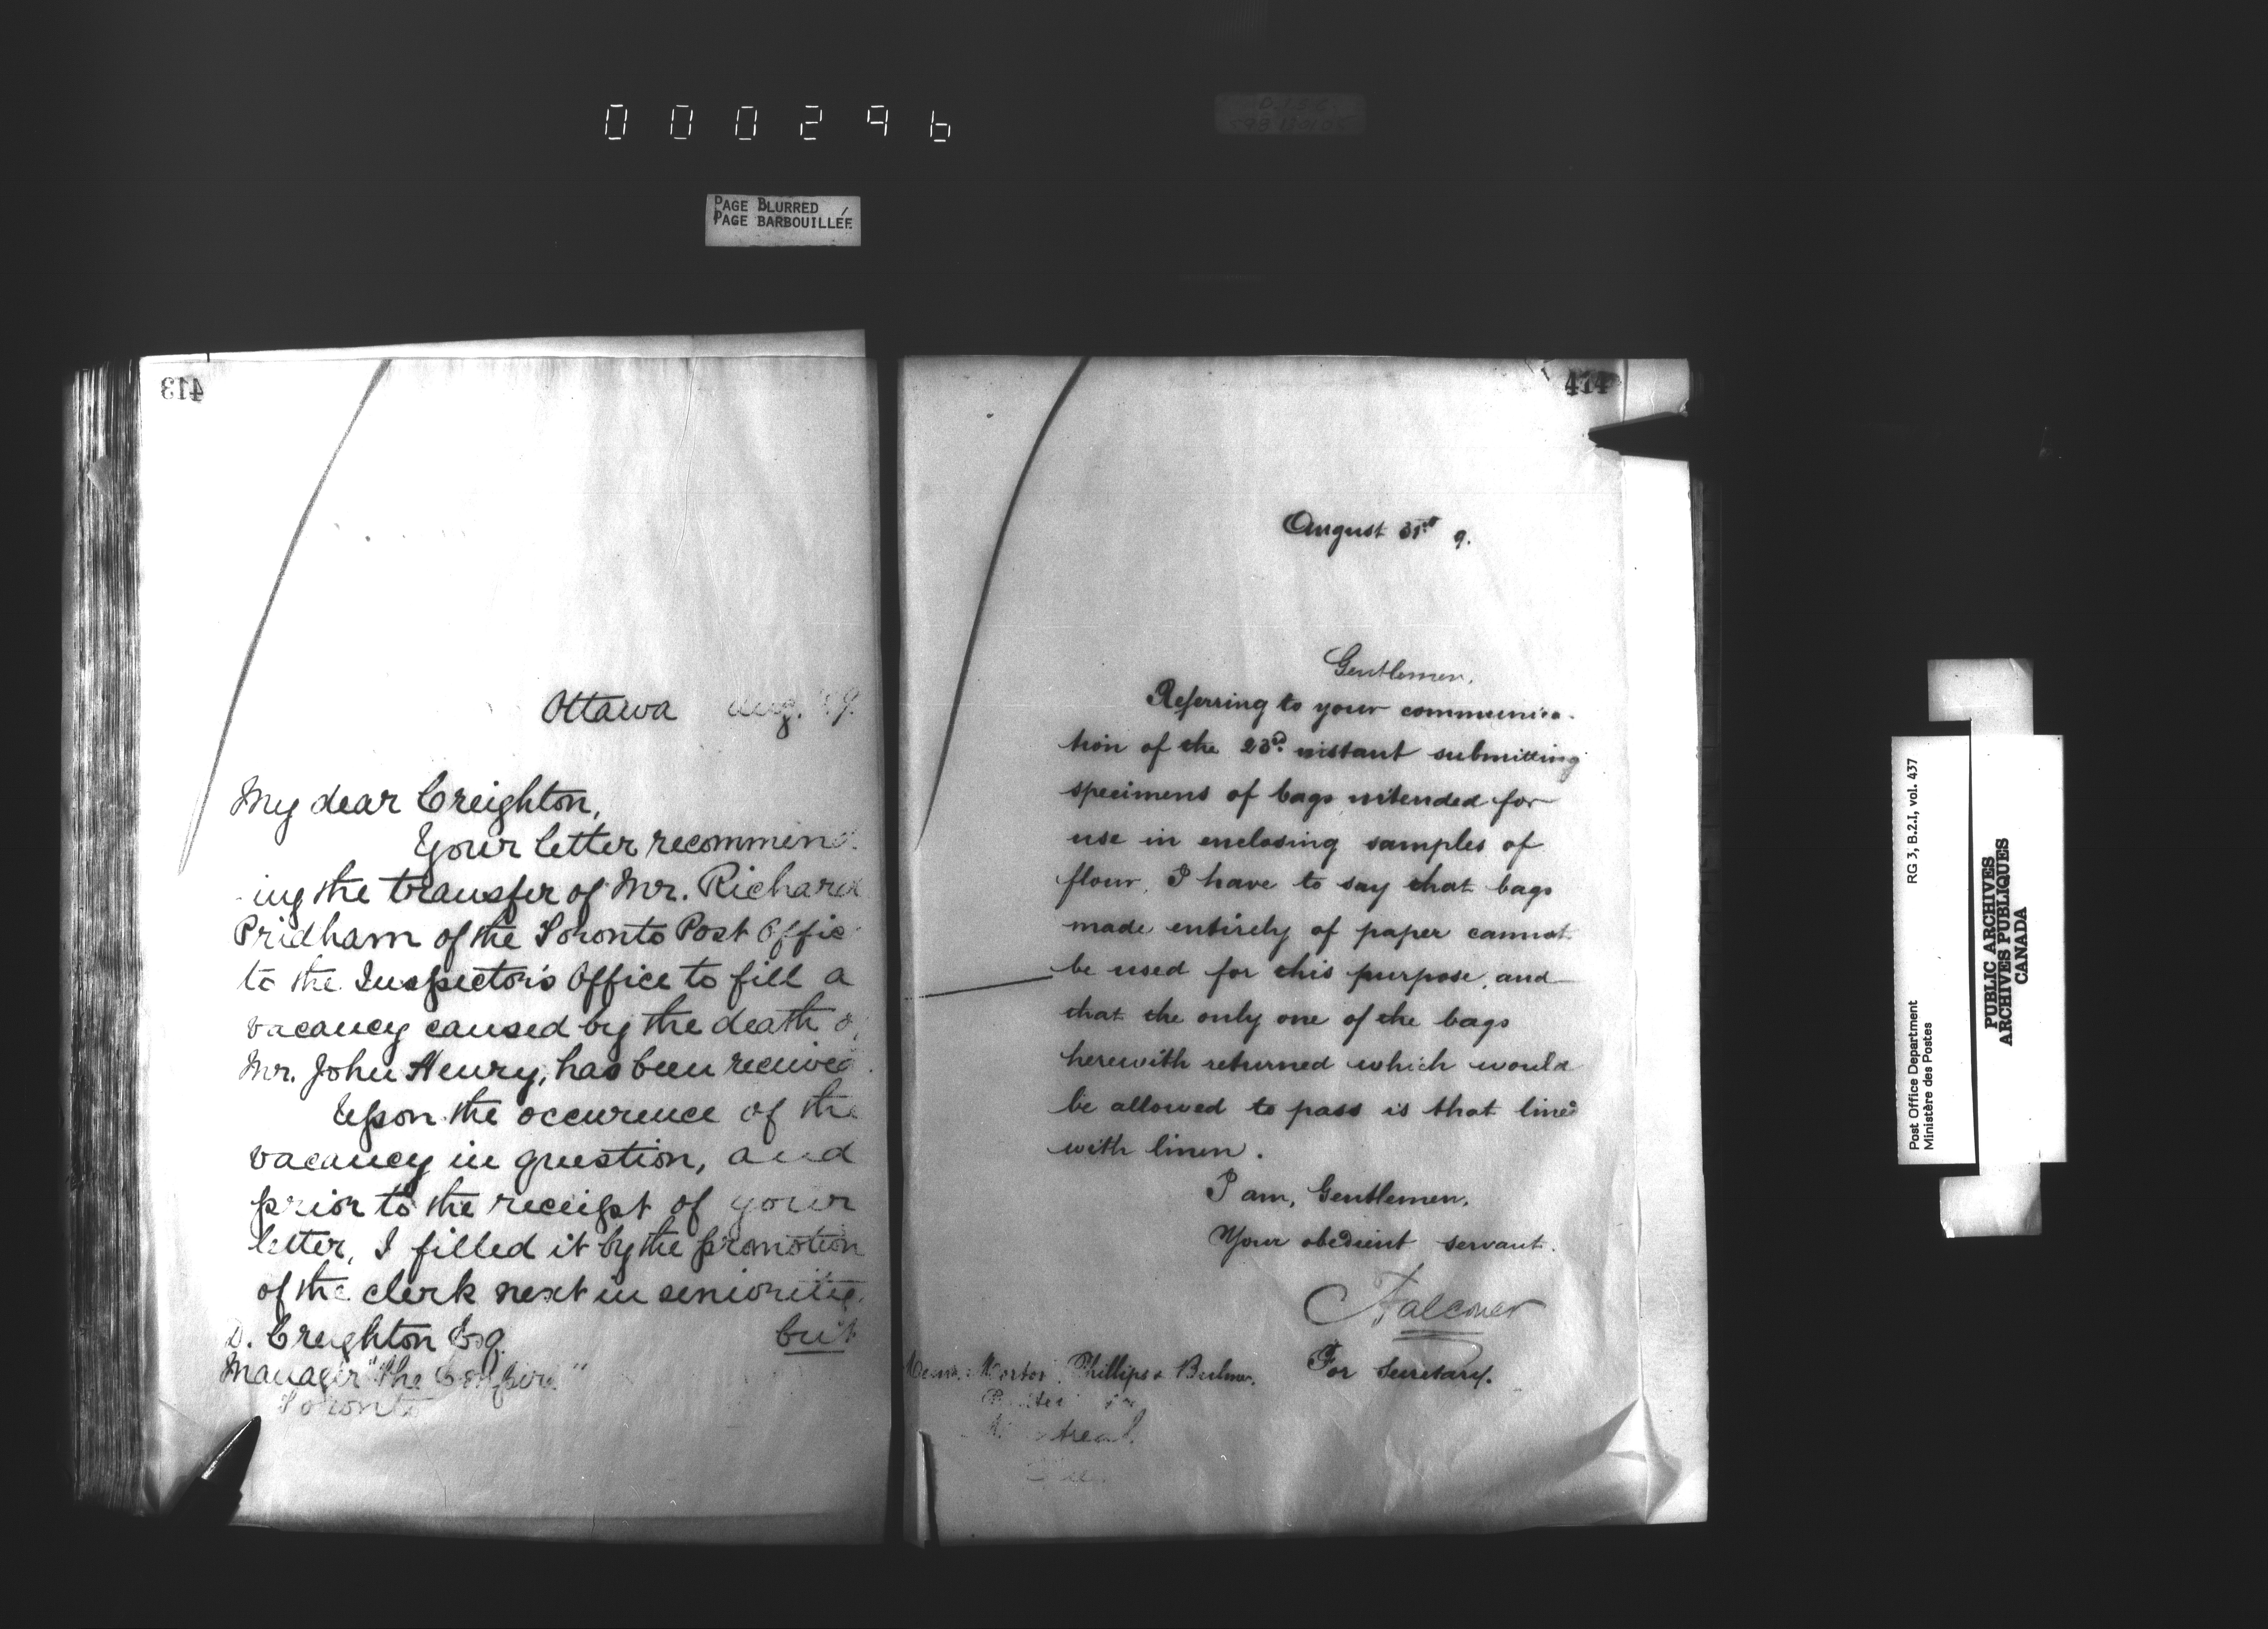 000296
PAGE BLURRED
PAGE BARBOUILLÉE
413
Ottawa Aug. 9.
My dear Creighton,
Your letter recommend
-ing the transfer of Mr. Richard
Pridham of the Toronto Post Offic
to the Inspector's Office to fill a
vacancy caused by the death o
Mr. John Henry, has been received.
Upon the occurence of the
vacancy in question, and
prior to the receipt of your
letter, I filled it by the promotion
of the clerk next in seniority.
but
D. Creighton Esq.
Manager "The Empire"
Toronto
414
August 31st 9.
Gentlemen,
Referring to your communica-
tion of the 23rd instant submitting
specimens of bags intended for
use in enclosing samples of
flour, I have to say that bags
made entirely of paper cannot
be used for this purpose, and
that the only one of the bags
herewith returned which would
be allowed to pass is that lined
with linen.
I am, Gentlemen,
Your obedient servant.
Falconer
For Secretary.
Messrs. Morton, Phillips & Bulmer.
Montreal.
Post Office Department RG 3, B.2.I, vol. 437
Ministère des Postes
PUBLIC ARCHIVES
ARCHIVES PUBLIQUES
CANADA